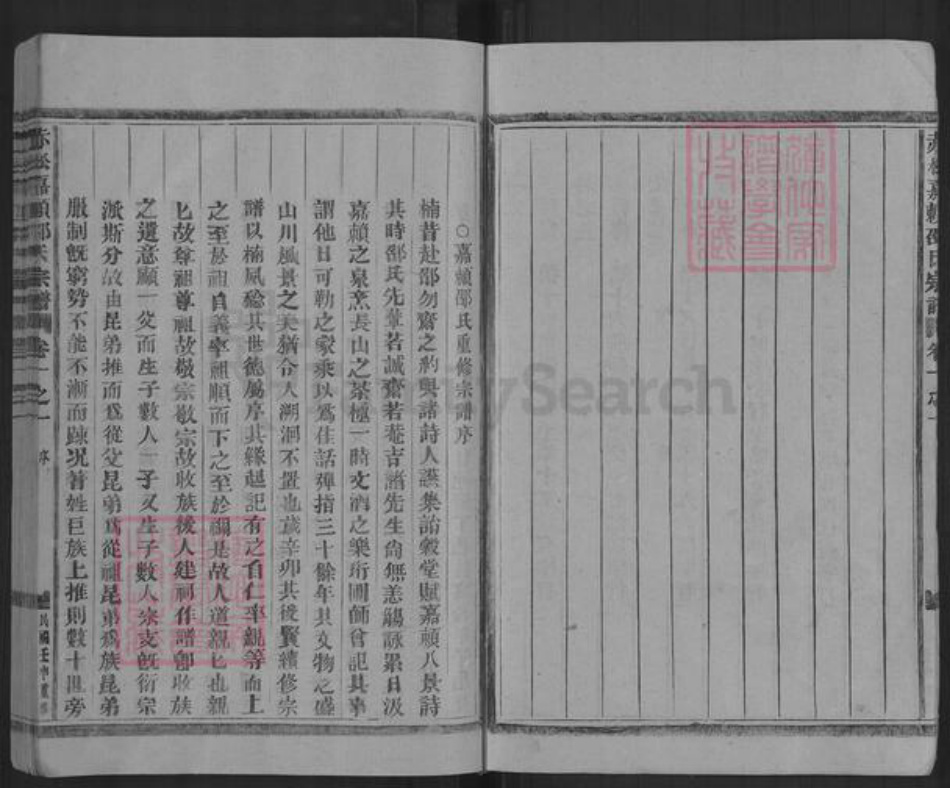 赤松嘉賴邵氏宗譜 卷一 序
○嘉賴邵氏重修宗譜序
楠昔赴邵勿齋之約與諸詩人讌集詒穀堂賦嘉賴八景詩
其時邵氏先輩若誠齋若菴吉諸先生尙無恙觴詠累日汲
嘉賴之泉烹長山之茶極一時文酒之樂珩圃師曾記其事
謂他日可勒之家乘以爲佳話彈指三十餘年其文物之盛
山川風景之美猶令人溯洄不置也歲辛卯其後賢續修宗
譜以楠夙稔其世德屬序其緣起記有之自仁率親等而上
之至於祖自義率祖順而下之至於禰是故人道親親也親
親故尊祖尊祖故敬宗敬宗故收族後人建祠作譜卽收族
之遺意顧一父而生子數人一子又生子數人宗支旣衍宗
派斯分故由昆弟推而爲從父昆弟爲從祖昆弟爲族昆弟
服制旣窮勢不能不漸而踈况著姓巨族上推則數十世旁
赤松嘉賴邵氏宗譜 卷一之一 序 民國壬申重修